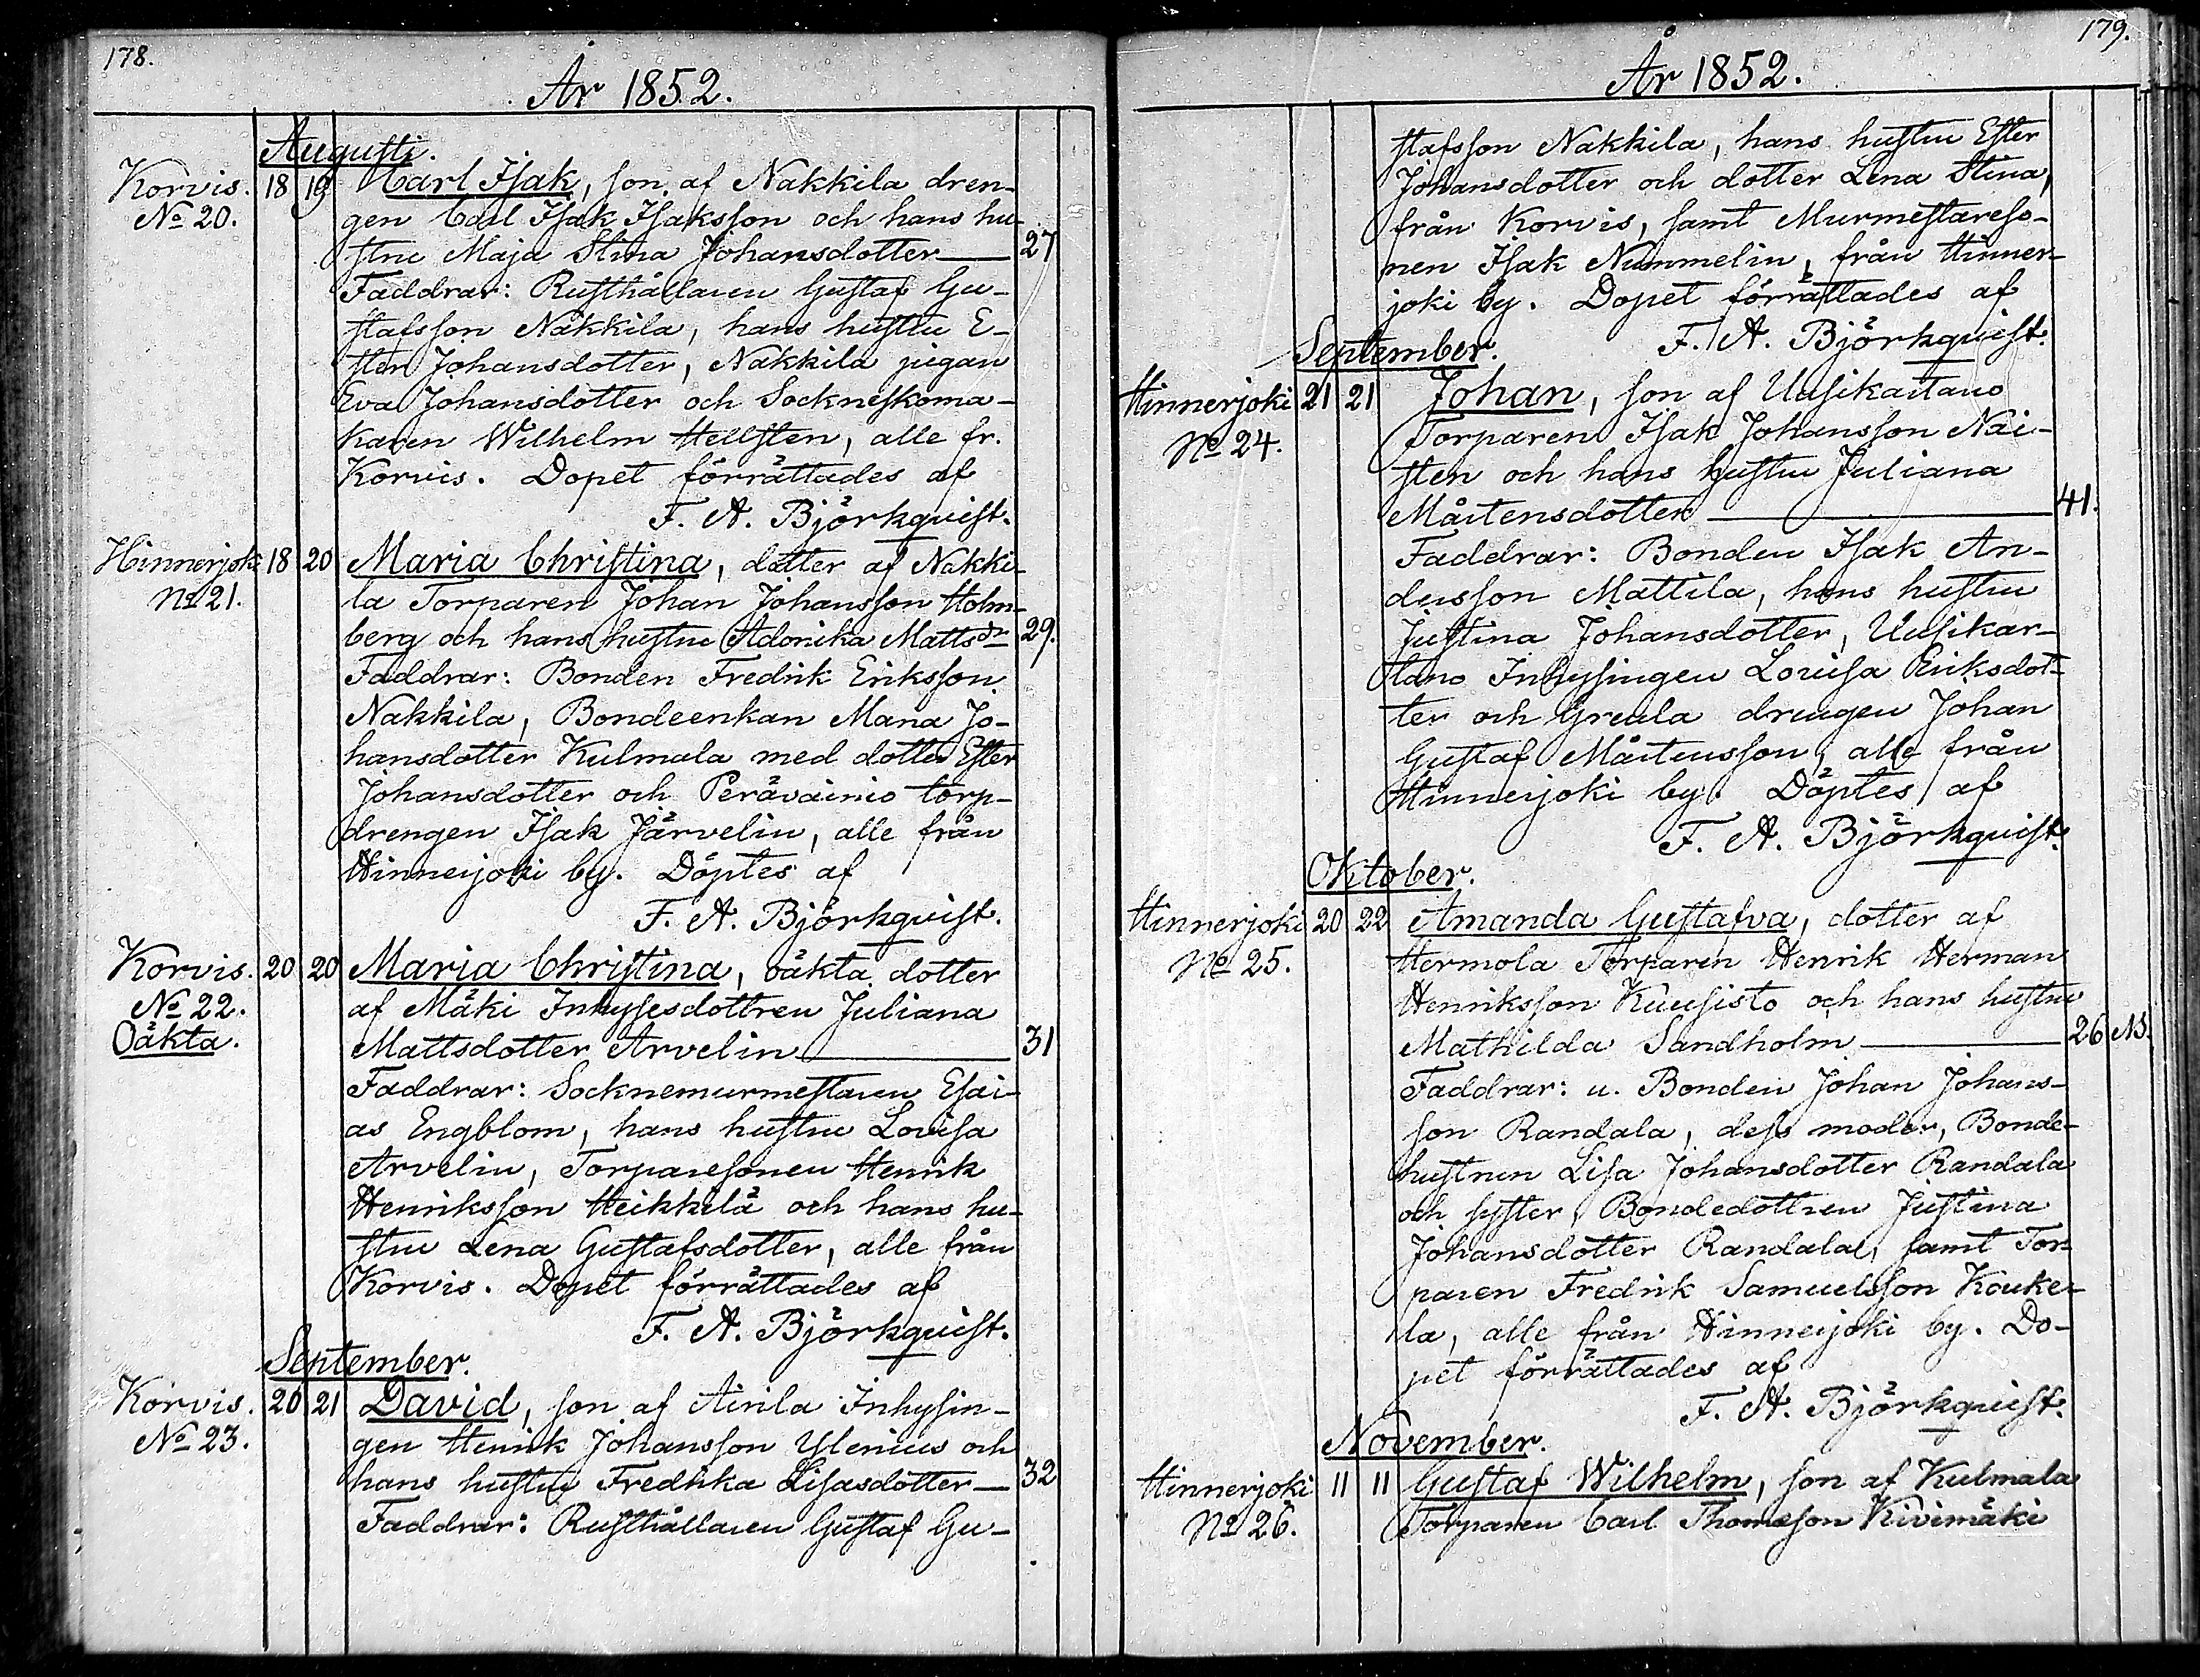 178.
År 1852.
Augusti.
Korvis. 18 19 Carl Isak, son af Nakkila dren-
No 20. gen Carl Isak Isaksson och hans hu-
stru Maja Stina Johansdotter 27
Faddrar: Rusthållaren Gustaf Gu-
stafsson Nakkila, hans hustru E-
ster Johansdotter, Nakkila pigan
Eva Johansdotter och Sockneskoma-
karen Wilhelm Hellsten, alle fr.
Korvis. Dopet förrättades af
F. A. Björkquist.
Hinnerjoki 18 20 Maria Christina, dotter af Nakki-
No 21. la Torparen Johan Johansson Holm-
berg och hans hustru Adonika Mattsdr 29.
Faddrar: Bonden Fredrik Eriksson
Nakkila, Bondeenkan Maria Jo-
hansdotter Kulmala med dotter Ester
Johansdotter och Perävainio torp-
drengen Isak Järvelin, alle från
Hinnerjoki by. Döptes af
F. A. Björkquist.
Korvis. 20 20 Maria Christina, oäkta dotter
No 22. af Mäki Inhysesdottren Juliana
Oäkta. Mattsdotter Arvelin 31
Faddrar: Socknemurmestaren Esai-
as Engblom, hans hustru Lovisa
Arvelin, Torparesonen Henrik
Henriksson Heikkilä och hans hu-
stru Lena Gustafsdotter, alle från
Korvis. Dopet förrättades af
F. A. Björkquist.
September.
Korvis. 20 21 David, son af Airila Inhysin-
No 23. gen Henrik Johansson Ylenius och
hans hustru Fredrika Lisasdotter 32
Faddrar: Rusthållaren Gustaf Gu-
179.
År 1852.
stafsson Nakkila, hans hustru Ester
Johansdotter och dotter Lena Stina,
från Korvis, samt Murmestareso-
nen Isak Nummelin, från Hinner-
joki by. Dopet förrättades af
F. A. Björkquist.
September.
Hinnerjoki 21 21 Johan, son af Uusikartano
No 24. Torparen Isak Johansson Näi-
sten och hans hustru Juliana
Mårtensdotter 41.
Faddrar: Bonden Isak An-
dersson Mattila, hans hustru
Justina Johansdotter, Uusikar-
tano Inhysingen Lovisa Eriksdot-
ter och Greula drengen Johan
Gustaf Mårtensson, alle från
Hinnerjoki by. Döptes af
F. A. Björkquist.
Oktober.
Hinnerjoki 20 22 Amanda Gustafva, dotter af
No 25. Hermola Torparen Henrik Herman
Henriksson Kuusisto och hans hustru
Mathilda Sandholm 26 NB.
Faddrar: u. Bonden Johan Johans-
son Randala, dess moder, Bonde-
hustrun Lisa Johansdotter Randala
och syster, Bondedottren Justina
Johansdotter Randala, samt Tor-
paren Fredrik Samuelsson Kouke-
la, alle från Hinnerjoki by. Do-
pet förrättades af
F. A. Björkquist.
November.
Hinnerjoki 11 11 Gustaf Wilhelm, son af Kulmala
No 26. Torparen Carl Thomæson Kivimäki